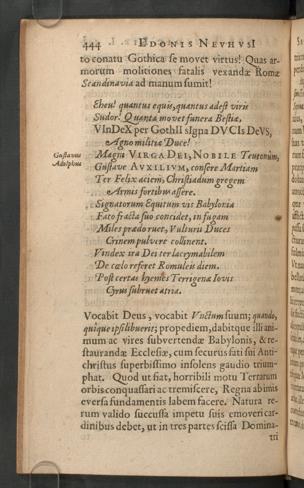 444 EDONIS NEVHVSI
to conatu Gothica se movet virtus! Quas ar-
morum molitiones fatalis vexandæ Romæ
Scandinavia ad manum sumit!
Eheu! quantus equis, quantus adest viris
Sudor! Quanta movet funera Bestiæ,
VInDeX per GothII sIgna DVCIs DeVS,
Agno militiæ Duce!
Gustavus
Adolphus
Magni VIRGA DEI, NOBILE Teutonûm,
Gustave AVXILIVM, consere Martiam
Ter Felix aciem, Christiadum gregem
Armis fortibus assere.
Signatorum Equitum vis Babylonia
Fato fracta suo concidet, in fugam
Miles præda ruet, Vulturii Duces
Crinem pulvere collinent.
Vindex ira Dei ter lacrymabilem
De cœlo referet Romuleis diem.
Post certas hyemes Terrigena Iovis
Cyrus subruet atria.
Vocabit Deus, vocabit Vnctum suum; quando,
quique ipsi libuerit; propediem, dabitque illi ani-
mum ac vires subvertendæ Babylonis, & re-
staurandæ Ecclesiæ, cum securus fati sui Anti-
christus superbissimo insolens gaudio trium-
phat. Quod ut fiat, horribili motu Terrarum
orbis conquassari ac tremiscere, Regna ab imis
eversa fundamentis labem facere. Natura re-
rum valido succussa impetu suis emoveri car-
dinibus debet, ut in tres partes scissa Domina-
tri